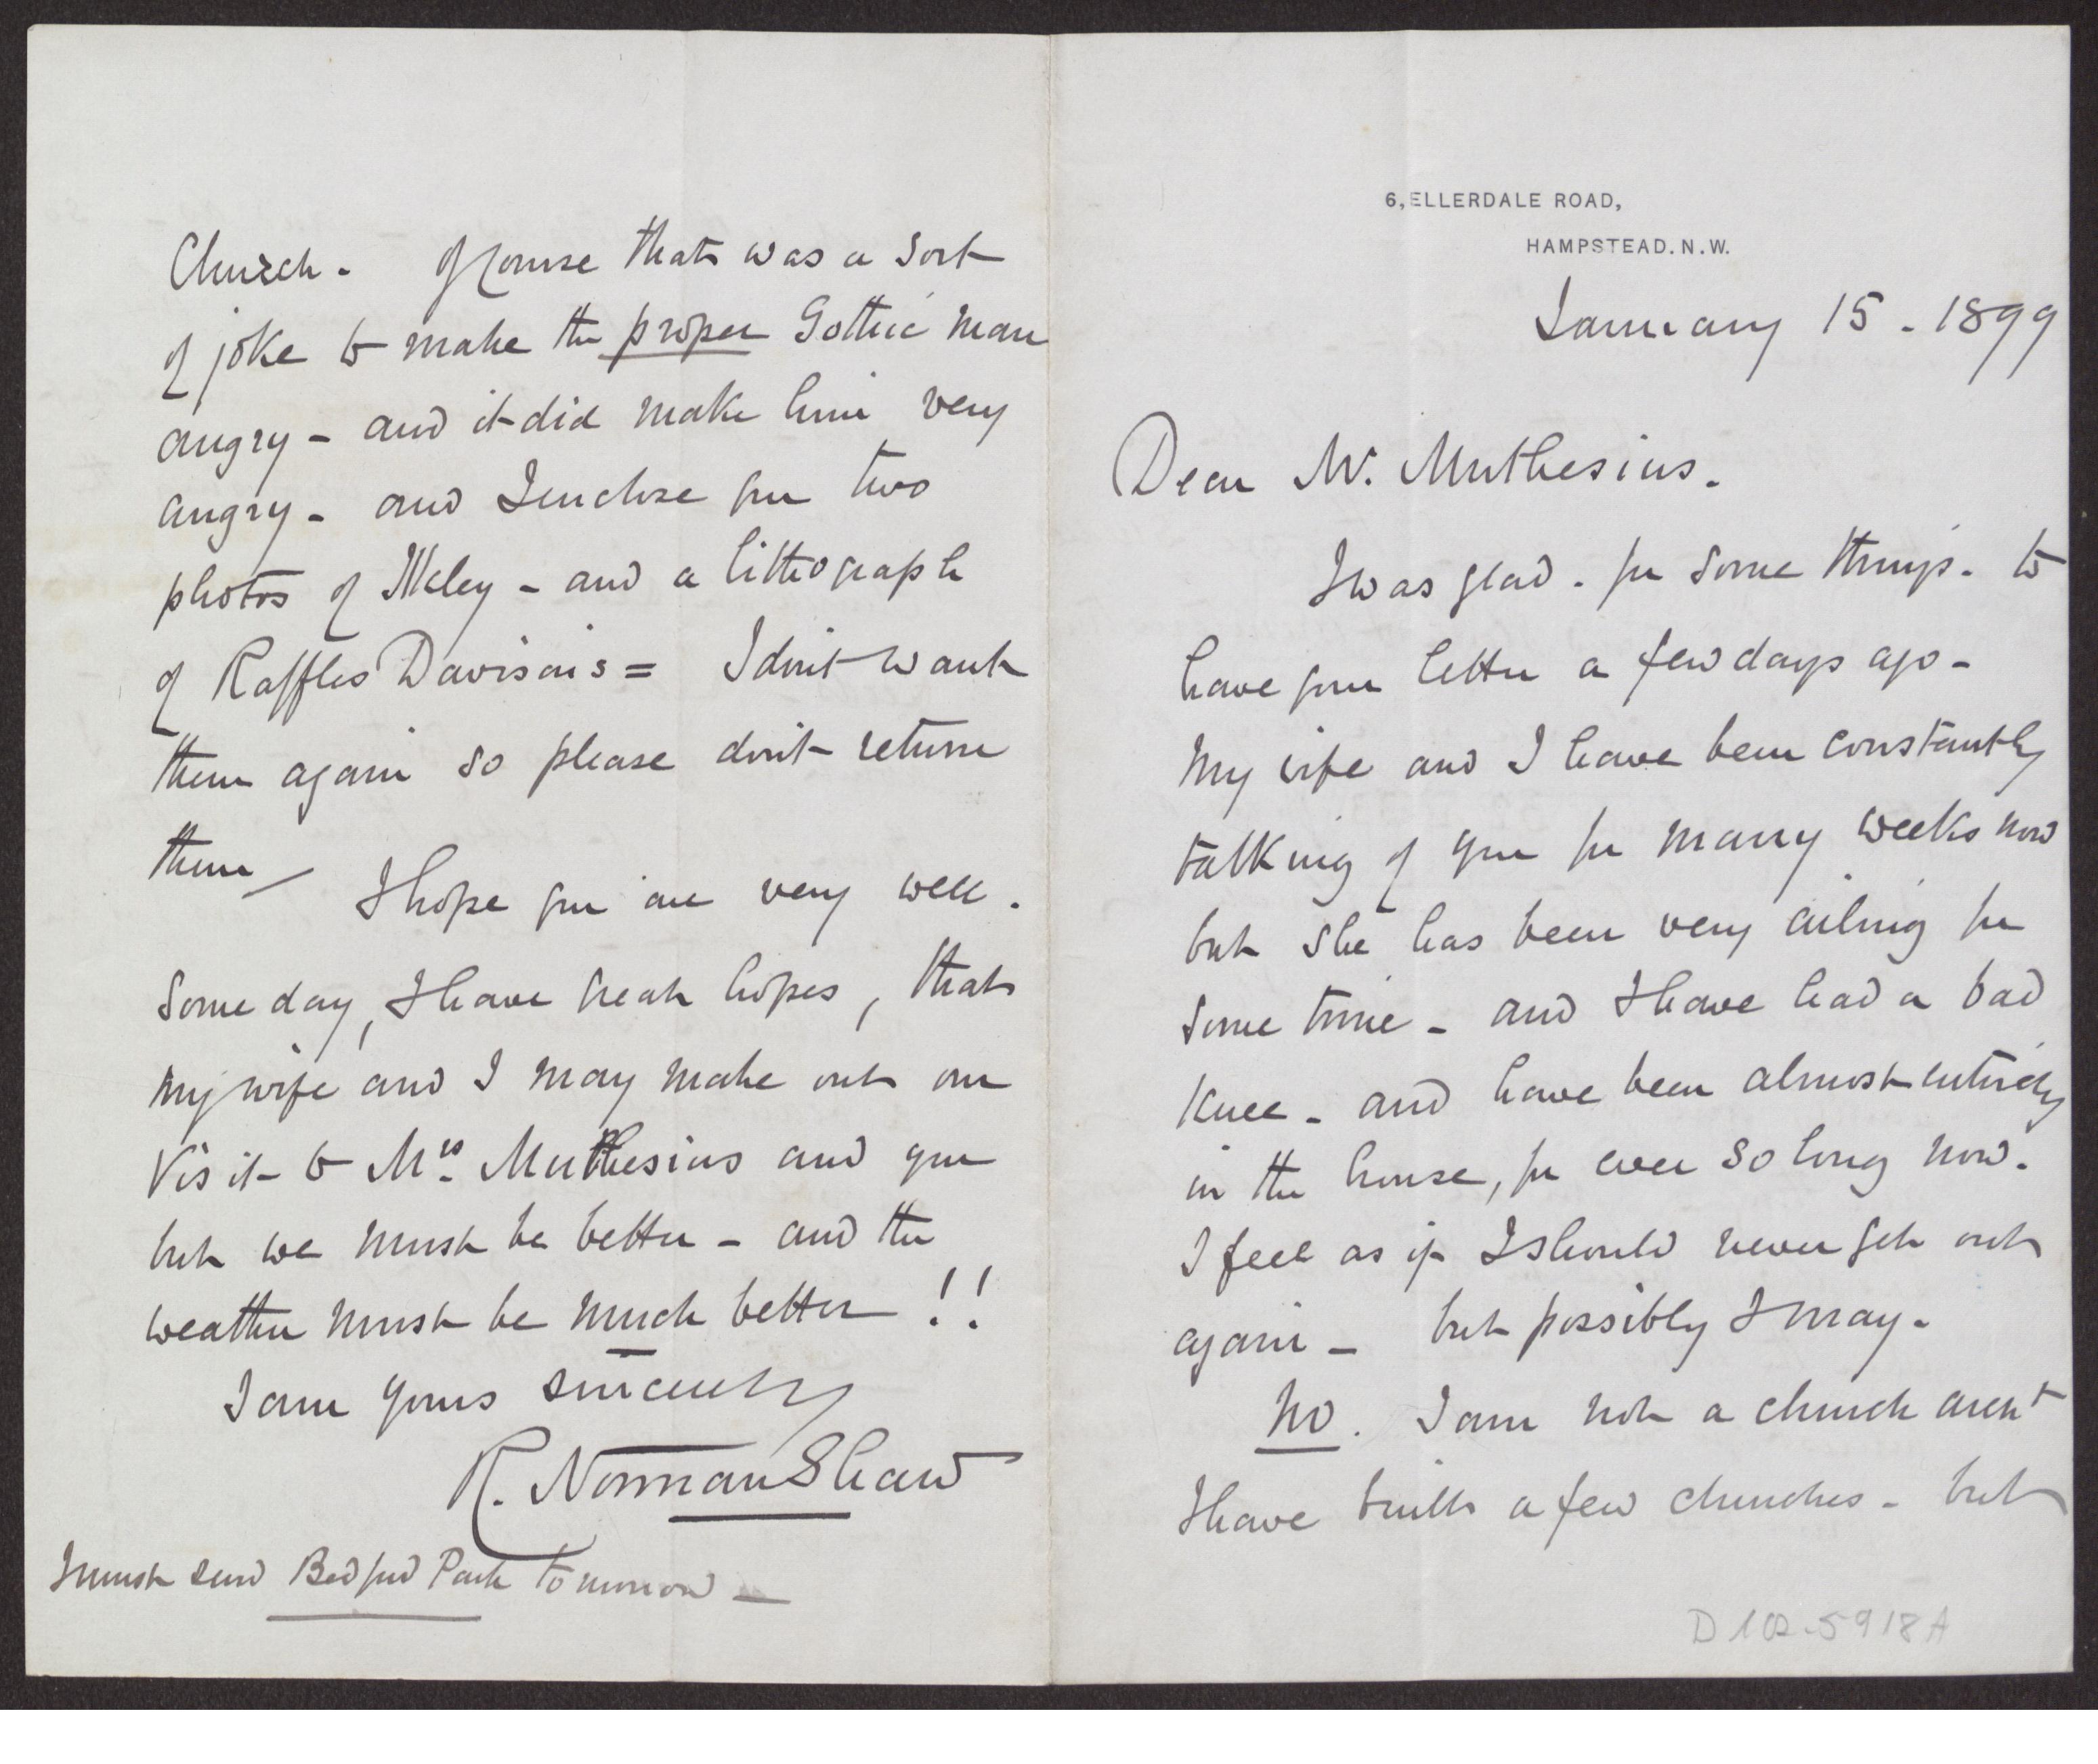 6, ELLERDALE ROAD,
HAMPSTEAD. N. W.
January 15 - 1899
Dear Mr. Muthesius.
I was glad - for some things - to
have your letter a few days ago -
My wife and I have been constantly
talking of you for many weeks now
but she has been very ailing for
some time - and I have had a bad
Knee - and have been almost entirely
in the house, for ever so long now.
I feel as if I should never get out
again - but possibly I may.
No. I am not a church archt
I have built a few churches - but
D 102-5918A
Church. Of course that was a sort
of joke to make the proper Gothic man
angry - and it did make him very
angry - and I enclose you two
photos of Ilkley - and a lithograph
of Raffles Davison's = I don't want
them again so please don't return
them - I hope you are very well.
Some day, I have great hopes, that
my wife and I may make out our
Visit to Mrs. Muthesius and you
but we must be better - and the
weather must be much better !!
I am yours sincerely
R. Norman Shaw
I must send Bedford Park tomorrow -